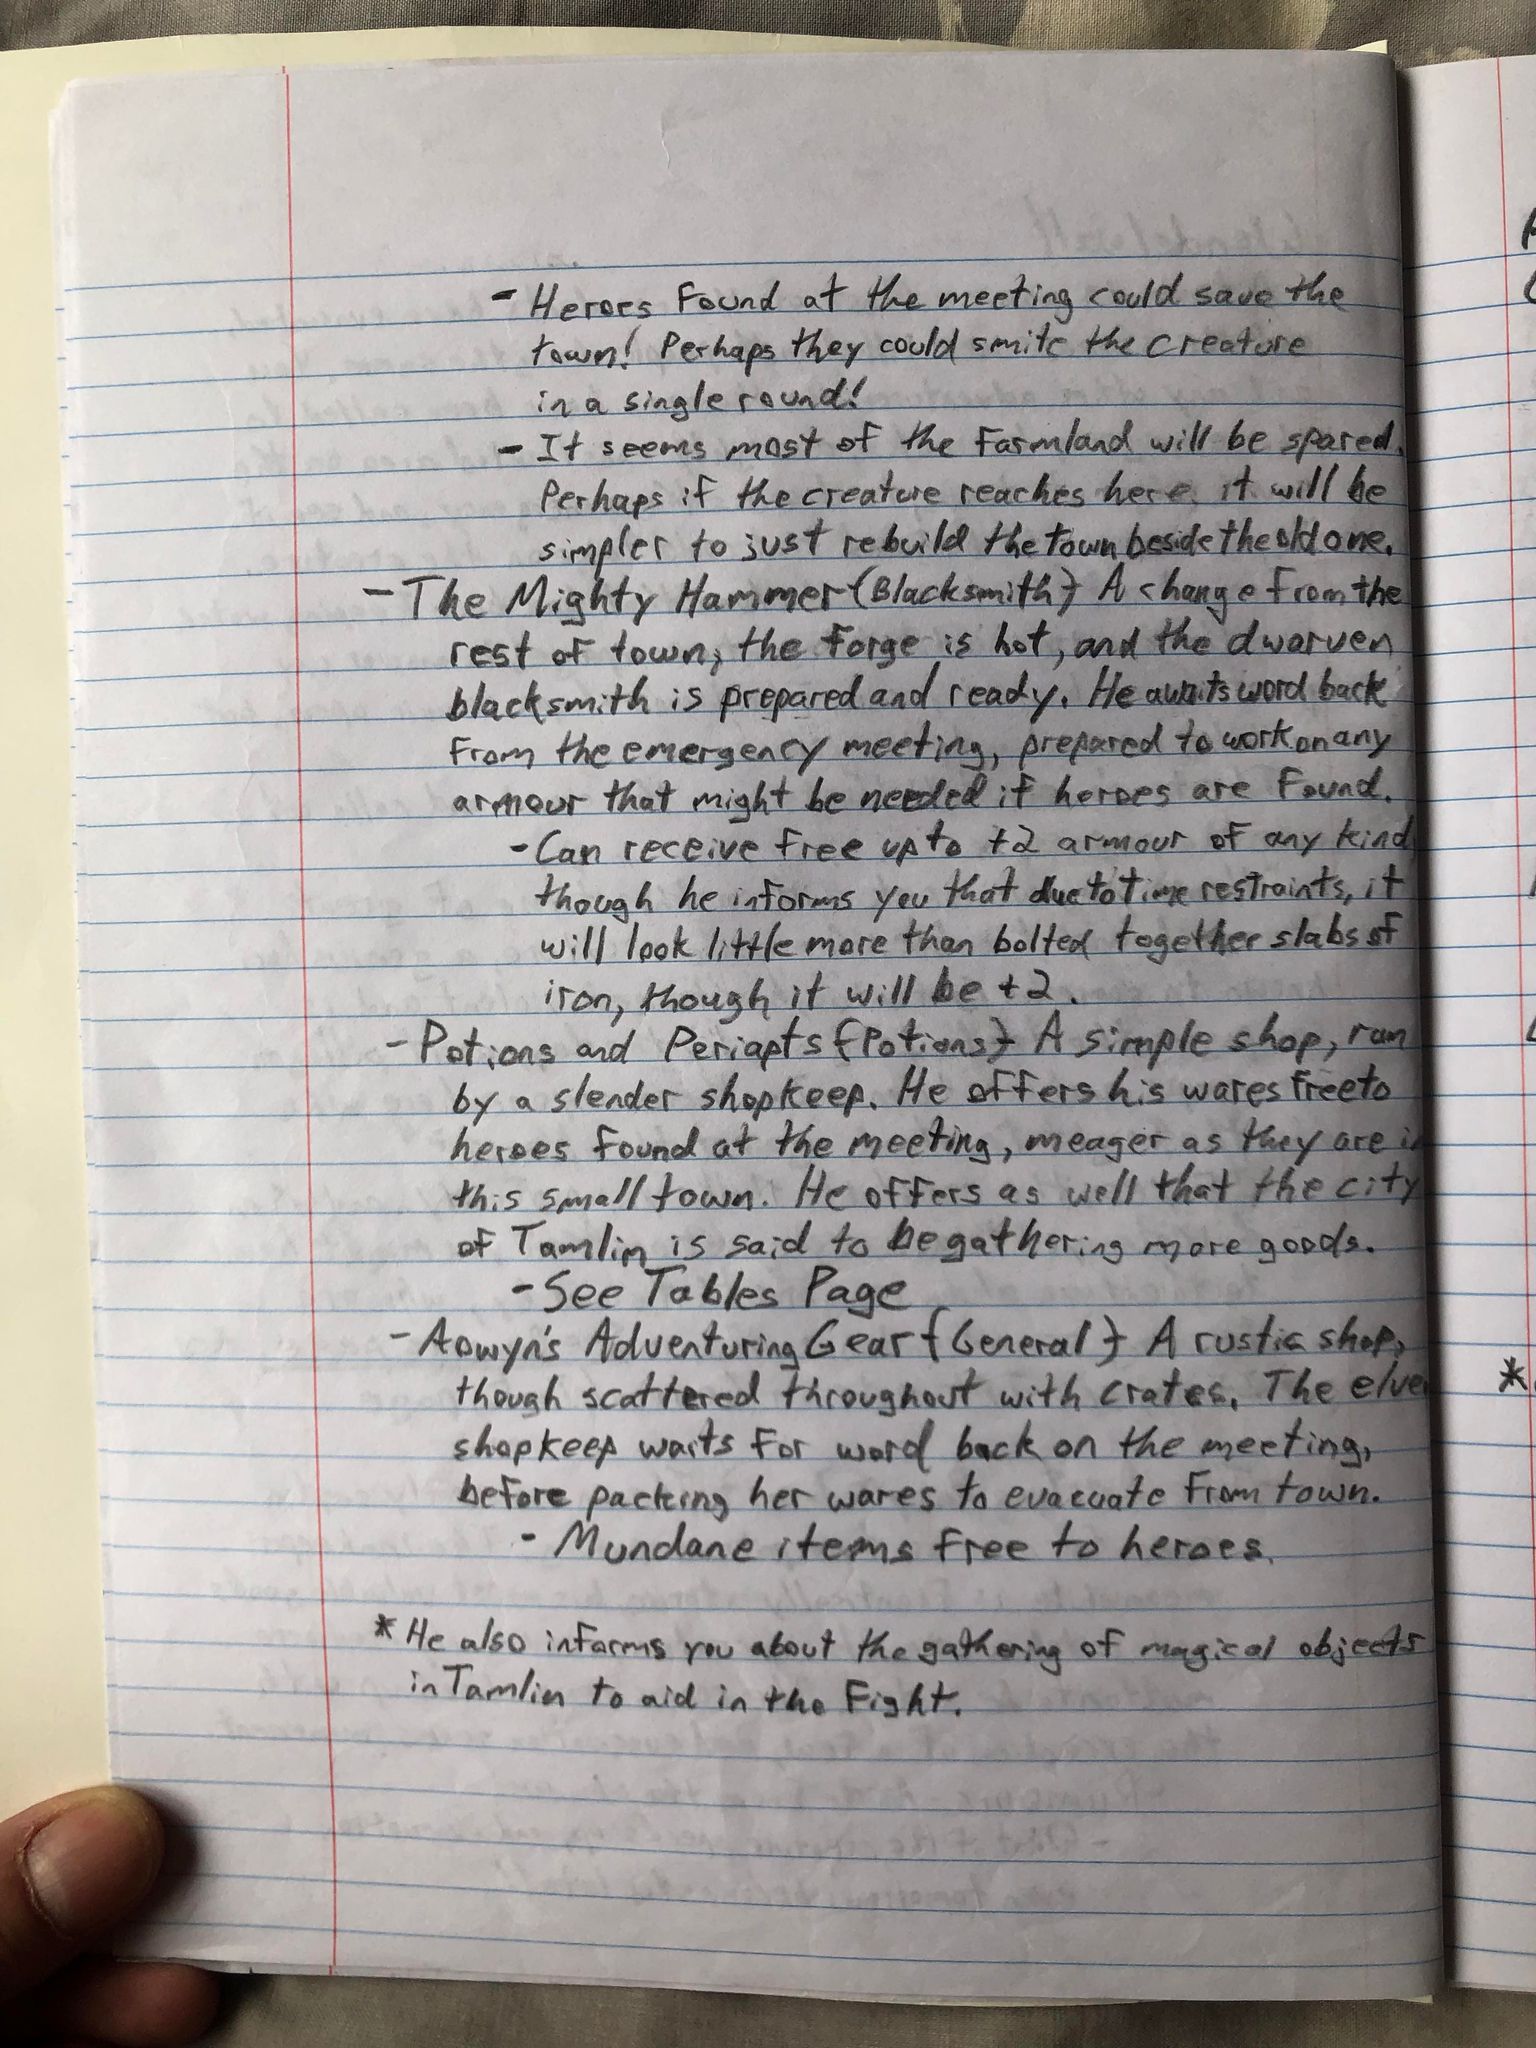 - Heroes Found at the meeting could save the
town! Perhaps they could smite the creature
in a single round!
- It seems most of the Farmland will be spared.
Perhaps if the creature reaches here, it will be
simpler to just rebuild the town beside the old one.
- The Mighty Hammer {Blacksmith} A change from the
rest of town, the forge is hot, and the dwarven
blacksmith is prepared and ready. He awaits word back
from the emergency meeting, prepared to work on any
armour that might be needed if heroes are found.
- Can receive free up to +2 armour of any kind
though he informs you that due to time restraints, it
will look little more than bolted together slabs of
iron, though it will be +2.
- Potions and Periapts {Potions} A simple shop, ran
by a slender shopkeep. He offers his wares free to
heroes found at the meeting, meager as they are in
this small town. He offers as well that the city
of Tamlin is said to be gathering more goods.
- See Tables Page
- Aowyn's Adventuring Gear {General} A rustic shop,
though scattered throughout with crates. The elve
shopkeep waits for word back on the meeting,
before packing her wares to evacuate from town.
- Mundane items free to heroes.
* He also informs you about the gathering of magical objects
in Tamlin to aid in the Fight.
*